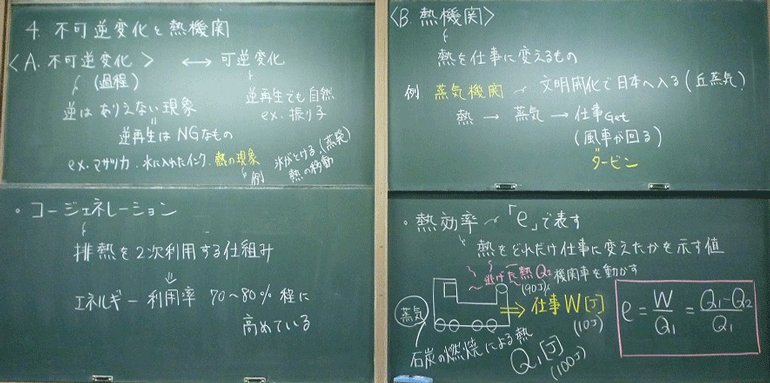 4. 不可逆変化と熱機関
〈A. 不可逆変化〉 ⟷ 可逆変化
(過程)
逆はありえない現象
逆再生はNGなもの
逆再生でも自然
ex. 振り子
ex. マサツ力. 水に入れたインク. 熱の現象
例 氷がとける.(蒸発)
熱の移動
〈B. 熱機関〉
熱を仕事に変えるもの
例 蒸気機関 文明開化で日本へ入る(丘蒸気)
熱 → 蒸気 → 仕事Get
(風車が回る)
タービン
・コージェネレーション
排熱を2次利用する仕組み
⇓
エネルギー利用率 70～80% 程に
高めている
・熱効率 「e」で表す
熱をどれだけ仕事に変えたかを示す値
逃げた熱Q₂ 機関車を動かす
(90J)
⇒ 仕事W[J]
(10J)
蒸気
石炭の燃焼による熱
Q₁[J]
(100J)
e = W/Q₁ = (Q₁-Q₂)/Q₁